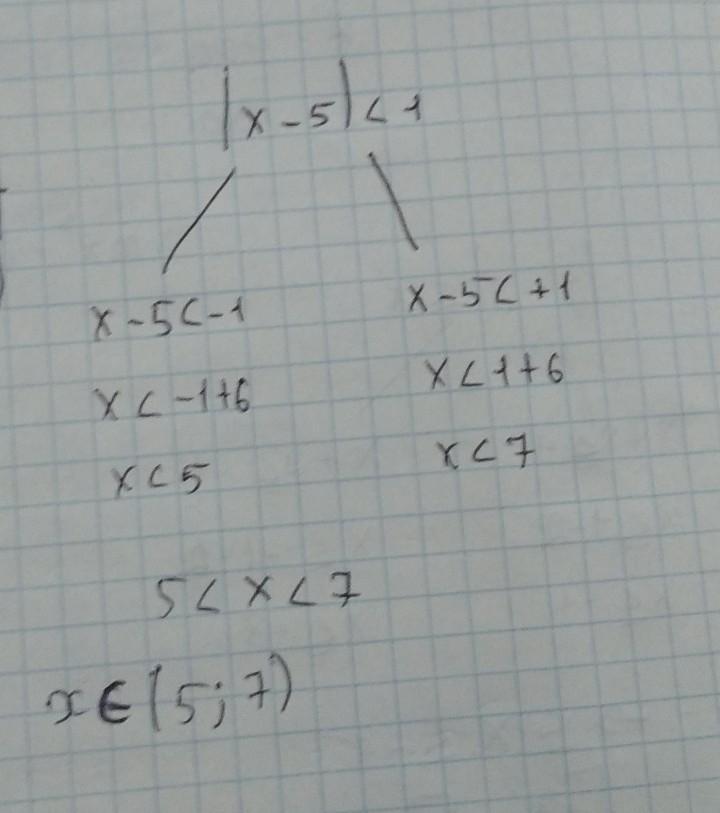 |x-5|<1
x-5<-1 x-5<+1
x<-1+6 x<1+6
x<5 x<7
5<x<7
x∈(5;7)